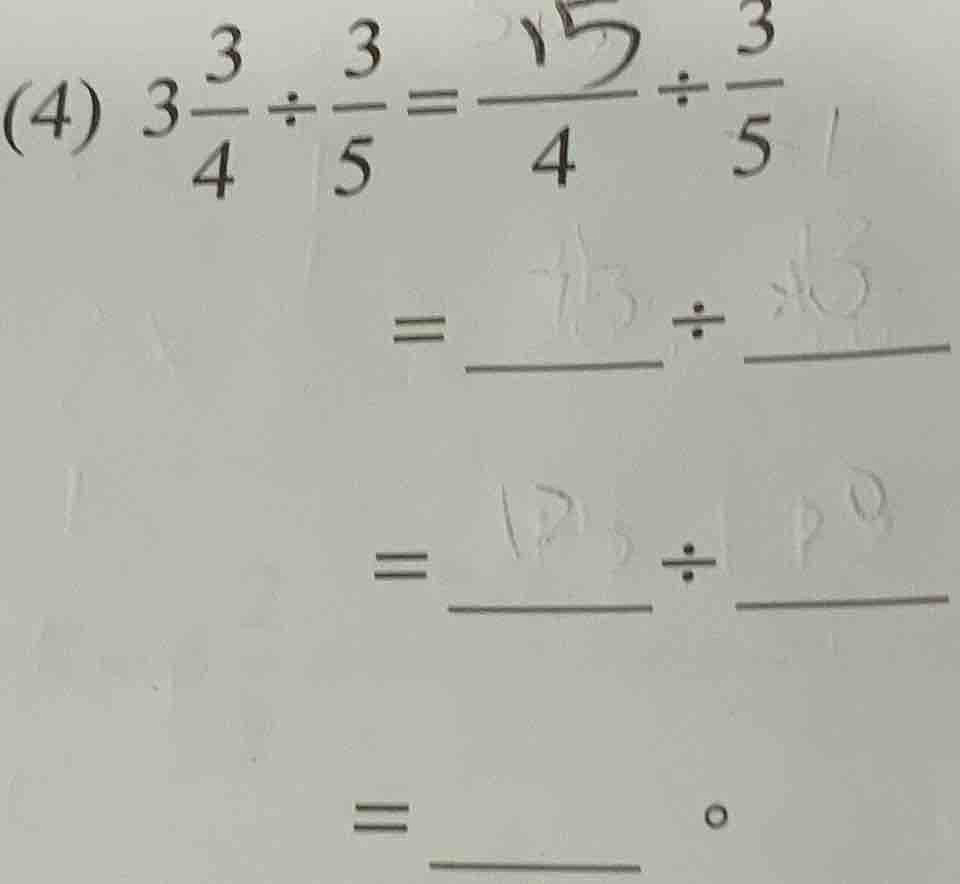 (4) 3 3/4 ÷ 3/5 = 15/4 ÷ 3/5
= ÷
= ÷
= 。